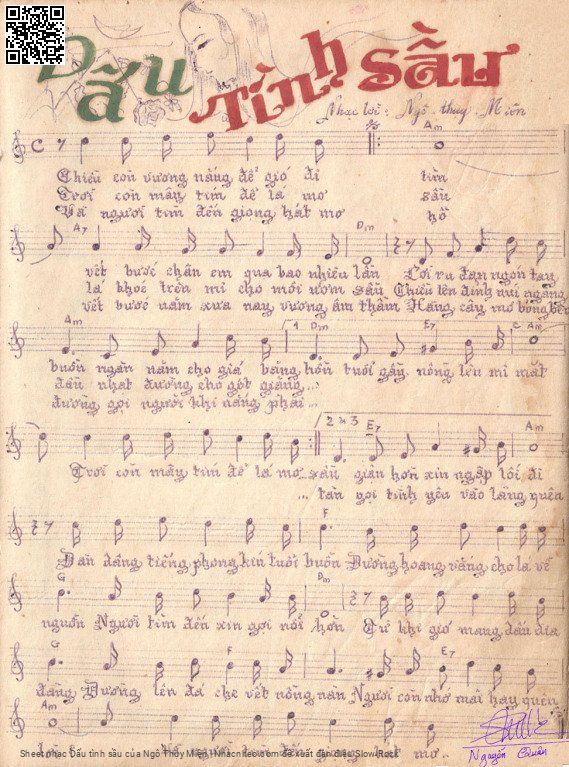 Dấu tình sầu
Nhạc lời: Ngô thụy Miên
Am
Chiều còn vương nắng để gió đi tìm
Trời còn mây tím để lá mơ sầu
Và người tìm đến giọng hát mơ hồ
A7 Dm
vết bước chân em qua bao nhiêu lần Lời ru đan ngón tay
lá khóc trên mi cho môi ươm sầu Chiều lên đỉnh núi ngang
vết bước năm xưa nay vương âm thầm Hàng cây mơ bóng
Am 1 Dm E7 C Am
buồn ngàn năm cho giá băng hồn tuổi gầy nồng lên mi mắt
đầu nhạt đường cho gót
đường gọi người khi nắng phai...
2 x 3 E7 Am
Trời còn mây tím để lá mơ.. sầu giận hờn xin ngập lối đi
... tàn gọi tình yêu vào lãng quên
F
tiếng phong kín tuổi buồn Đường hoang vắng cho lá về
G Dm
nguồn Người tìm đến xin gọi nỗi hờn Từ khi gió mang dấu địa
G F E7
đàng Đường lên đá che vết nồng nàn Người còn nhớ mãi hay quên
Am
Sheet nhạc Dấu tình sầu của Ngô Thụy Miên | Hhacnheo.com đề xuất đàn điệu Slow Rock
Nguyễn Quân